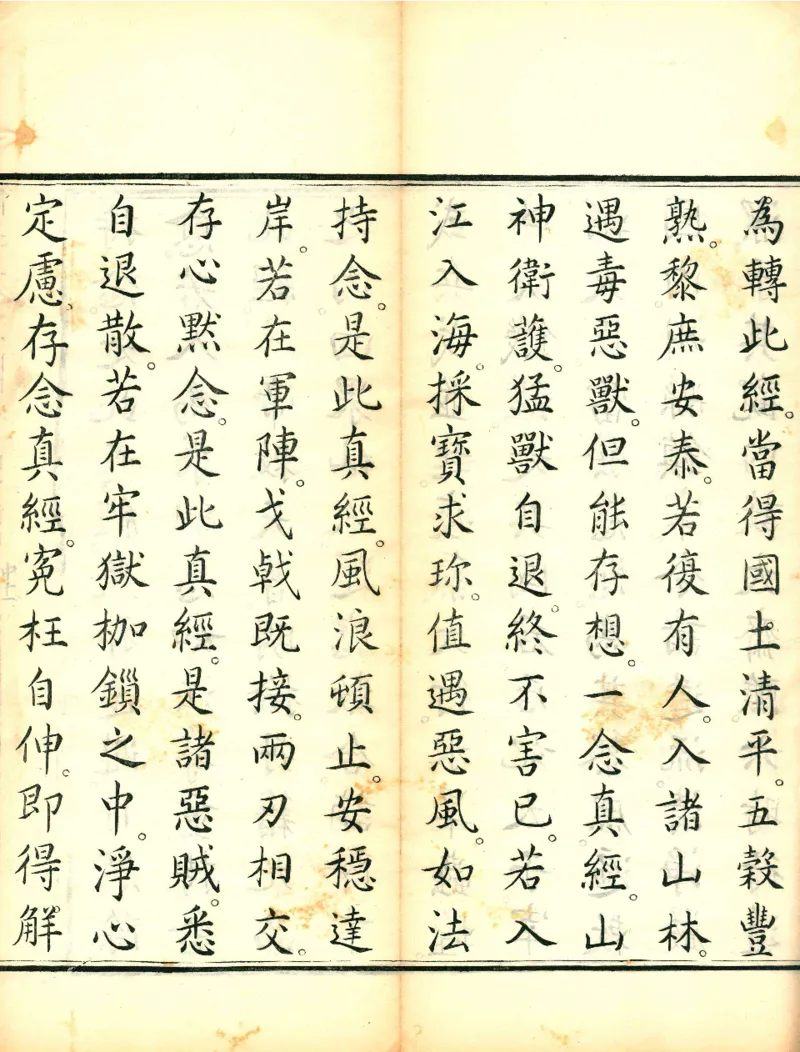 為轉此經。當得國土清平。五穀豐
熟。黎庶安泰。若復有人。入諸山林。
遇毒惡獸。但能存想。一念真經。山
神衛護。猛獸自退。終不害已。若入
江入海。採寶求珎。值遇惡風。如法
持念。是此真經。風浪頓止。安穩達
岸。若在軍陣。戈戟既接。兩刃相交。
存心默念。是此真經。是諸惡賊。悉
自退散。若在牢獄枷鎖之中。淨心
定慮。存念真經。冤枉自伸。即得解